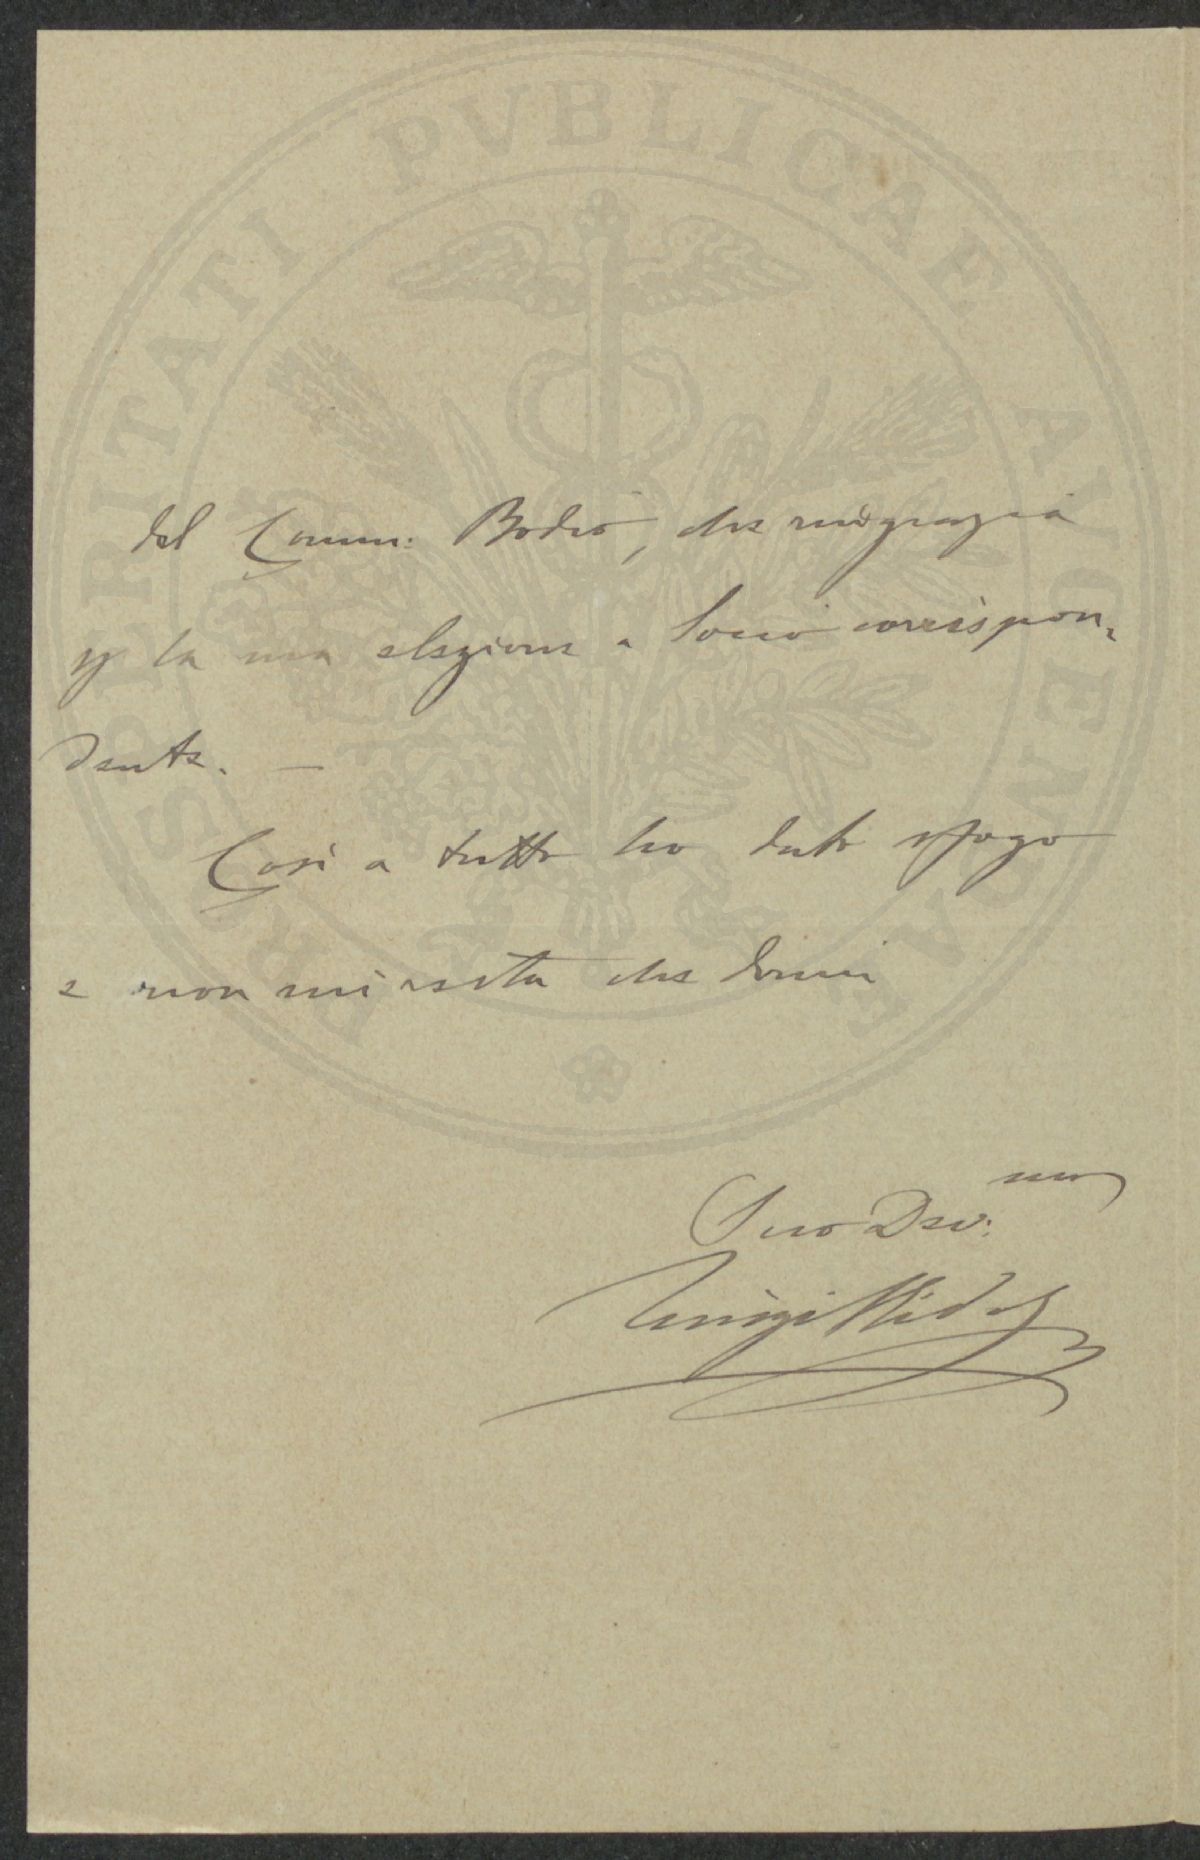 PROSPERITATI PVBLICAE AVGENDAE
del Comm: Bodio, che ringrazia
p la sua elezione a Socio corrispon-
dente. —
Così a tutto ho dato sfogo
e non mi resta che dirmi
Suo Dev: mo
Luigi Ridolfi